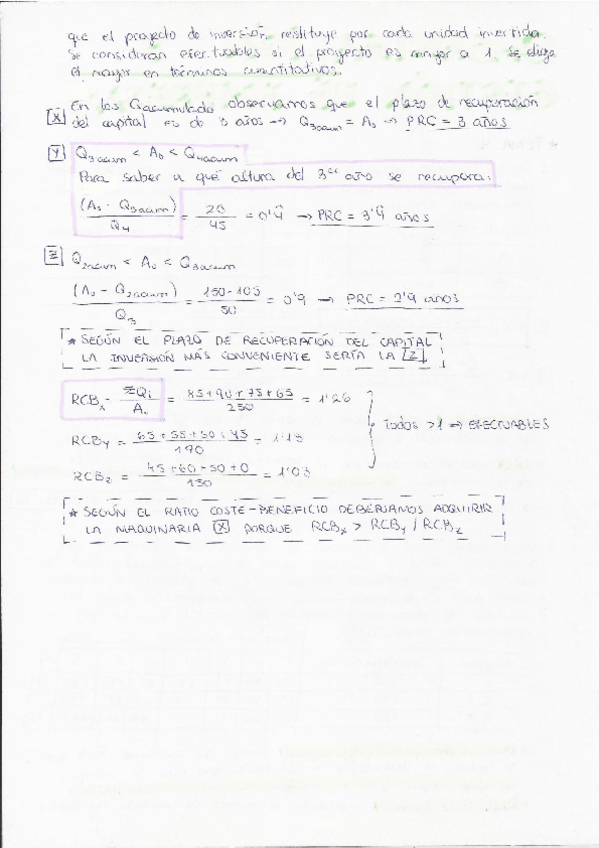 que el proyecto de inversión, restituye por cada unidad invertida.
Se consideran efectuables si el proyecto es mayor a 1. Se elige
el mayor en términos cuantitativos.
[X] En los Qacumulado observamos que el plazo de recuperación
del capital es de 3 años → Q3acum = A0 → PRC = 3 años
[Y] Q3acum < A0 < Q4acum
Para saber a qué altura del 3er año se recupera:
(A0 - Q3acum) / Q4 = 20 / 45 = 0'4̂ → PRC = 3'4̂ años
[Z] Q2acum < A0 < Q3acum
(A0 - Q2acum) / Q3 = 150-105 / 50 = 0'9 → PRC = 2'9 años
* SEGÚN EL PLAZO DE RECUPERACIÓN DEL CAPITAL
LA INVERSIÓN MÁS CONVENIENTE SERÍA LA [Z]
RCBx = ΣQi / A0 = 85+90+75+65 / 250 = 1'26
RCBy = 65+55+50+45 / 190 = 1'13
Todos >1 ⇒ EFECTUABLES
RCBz = 45+60+50+0 / 150 = 1'03
* SEGÚN EL RATIO COSTE-BENEFICIO DEBERÍAMOS ADQUIRIR
LA MAQUINARIA [X] PORQUE RCBx > RCBy / RCBz